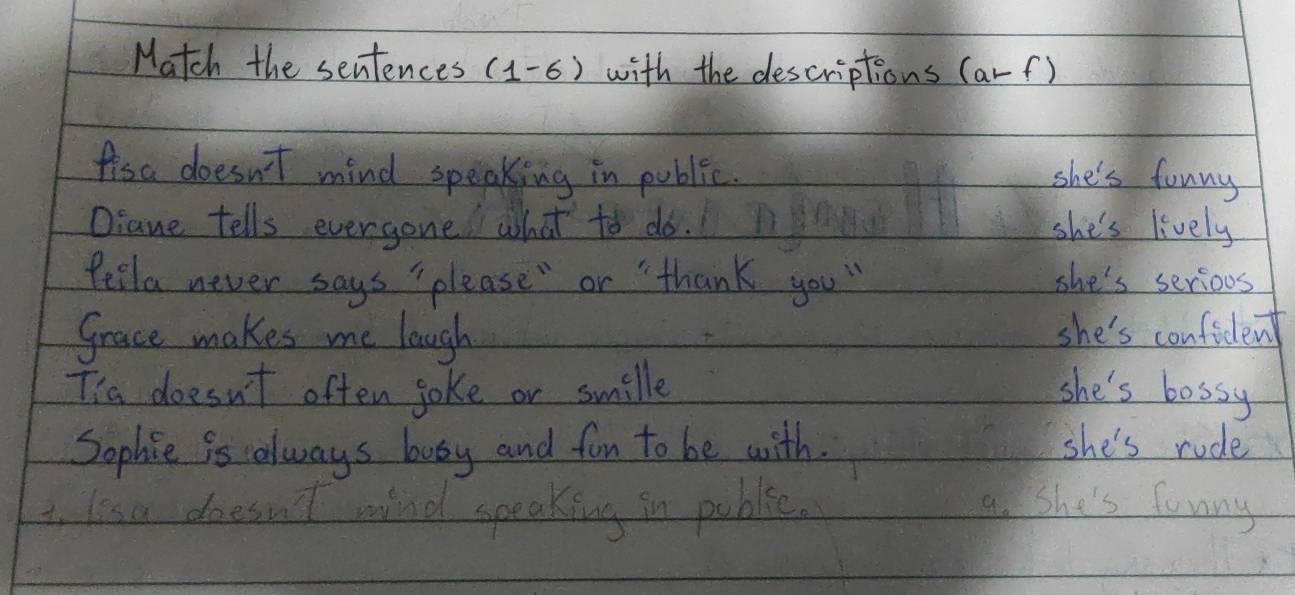 Match the sentences (1-6) with the descriptions (a-f)
Lisa doesn't mind speaking in public. she's funny
Diane tells everyone what to do. she's lively
Leila never says "please" or "thank you" she's serious
Grace makes me laugh she's confident
Tia doesn't often joke or smille she's bossy
Sophie is always busy and fun to be with. she's rude
1. Lisa doesn't mind speaking in public. a. She's funny